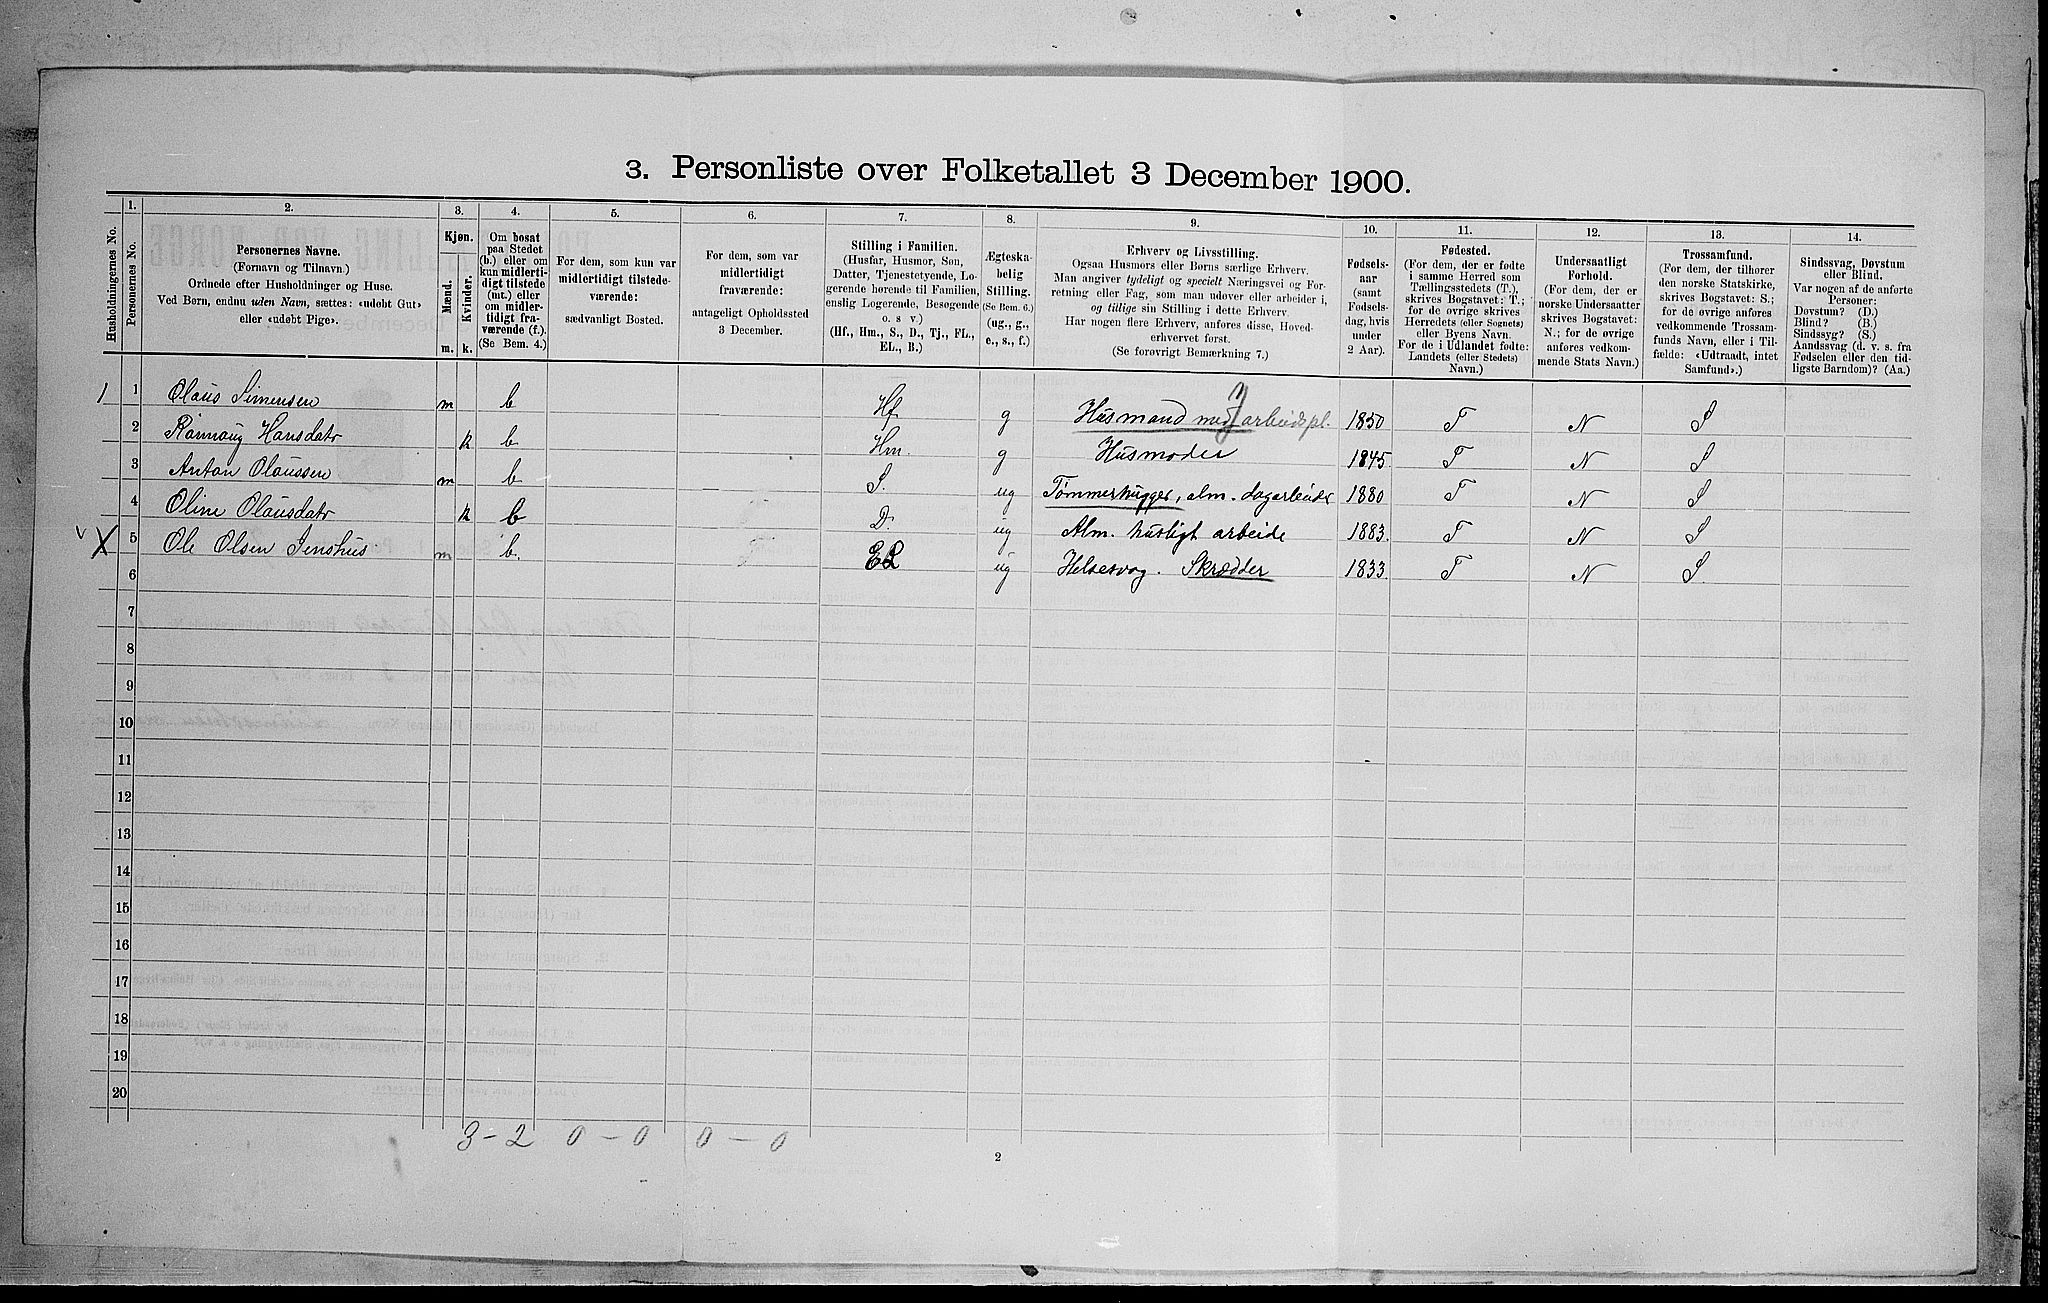 3. Personliste over Folketallet 3 December 1900.
1. 2. 3. 4. 5. 6. 7. 8. 9. 10. 11. 12. 13. 14.
Husholdningernes No.
Personernes No.
Personernes Navne.
(Fornavn og Tilnavn.)
Ordnede efter Husholdninger og Huse.
Ved Børn, endnu uden Navn, sættes: «udøbt Gut»
eller «udøbt Pige».
Kjøn.
Mænd.
Kvinder.
m. k.
Om bosat
paa Stedet
(b.) eller om
kun midlerti-
digt tilstede
(mt.) eller
om midler-
tidigt fra-
værende (f.).
(Se Bem. 4.)
For dem, som kun var
midlertidigt tilstede-
værende:
sædvanligt Bosted.
For dem, som var
midlertidigt
fraværende:
antageligt Opholdssted
3 December.
Stilling i Familien.
(Husfar, Husmor, Søn,
Datter, Tjenestetyende, Lo-
gerende hørende til Familien,
enslig Logerende, Besøgende
o. s v.)
(Hf., Hm., S., D., Tj., FL.,
EL., B.)
Ægteska-
belig
Stilling.
(Se Bem. 6.)
(ug., g.,
e., s., f.)
Erhverv og Livsstilling.
Ogsaa Husmors eller Børns særlige Erhverv.
Man angiver tydeligt og specielt Næringsvei og For-
retning eller Fag, som man udøver eller arbeider i,
og tillige sin Stilling i dette Erhverv.
Har nogen flere Erhverv, anføres disse, Hoved-
erhvervet først.
(Se forøvrigt Bemærkning 7.)
Fødsels-
aar
(samt
Fødsels-
dag, hvis
under
2 Aar).
Fødested.
(For dem, der er fødte
i samme Herred som
Tællingsstedets (T.),
skrives Bogstavet: T.;
for de øvrige skrives
Herredets (eller Sognets)
eller Byens Navn.
For de i Udlandet fødte:
Landets (eller Stedets)
Navn.)
Undersaatligt
Forhold.
(For dem, der er
norske Undersaatter
skrives Bogstavet:
N.; for de øvrige
anføres vedkom-
mende Stats Navn.)
Trossamfund.
(For dem, der tilhører
den norske Statskirke,
skrives Bogstavet: S.;
for de øvrige anføres
vedkommende Trossam-
funds Navn, eller i Til-
fælde: «Udtraadt, intet
Samfund».)
Sindssvag, Døvstum
eller Blind.
Var nogen af de anførte
Personer:
Døvstum? (D.)
Blind? (B.)
Sindssyg? (S.)
Aandssvag (d. v. s. fra
Fødselen eller den tid-
ligste Barndom)? (Aa.)
1 1 Olaus Simensen m b Hf g Husmand med arbeidspl. 1850 T N S
2 Rønnaug Hansdatr k b Hm. g Husmoder 1845 T N S
3 Anton Olaussen m b S. ug Tømmerhugger, alm. dagarbeider 1880 T N S
4 Oline Olausdatr k b D. ug Alm. husligt arbeide 1883. T N S
X 5 Ole Olsen Jenshus m b. EL ug Skrædder 1833. T N S
6
7
8
9
10
11
12
13
14
15
16
17
18
19
20
3 - 2 0 - 0 0 - 0
2